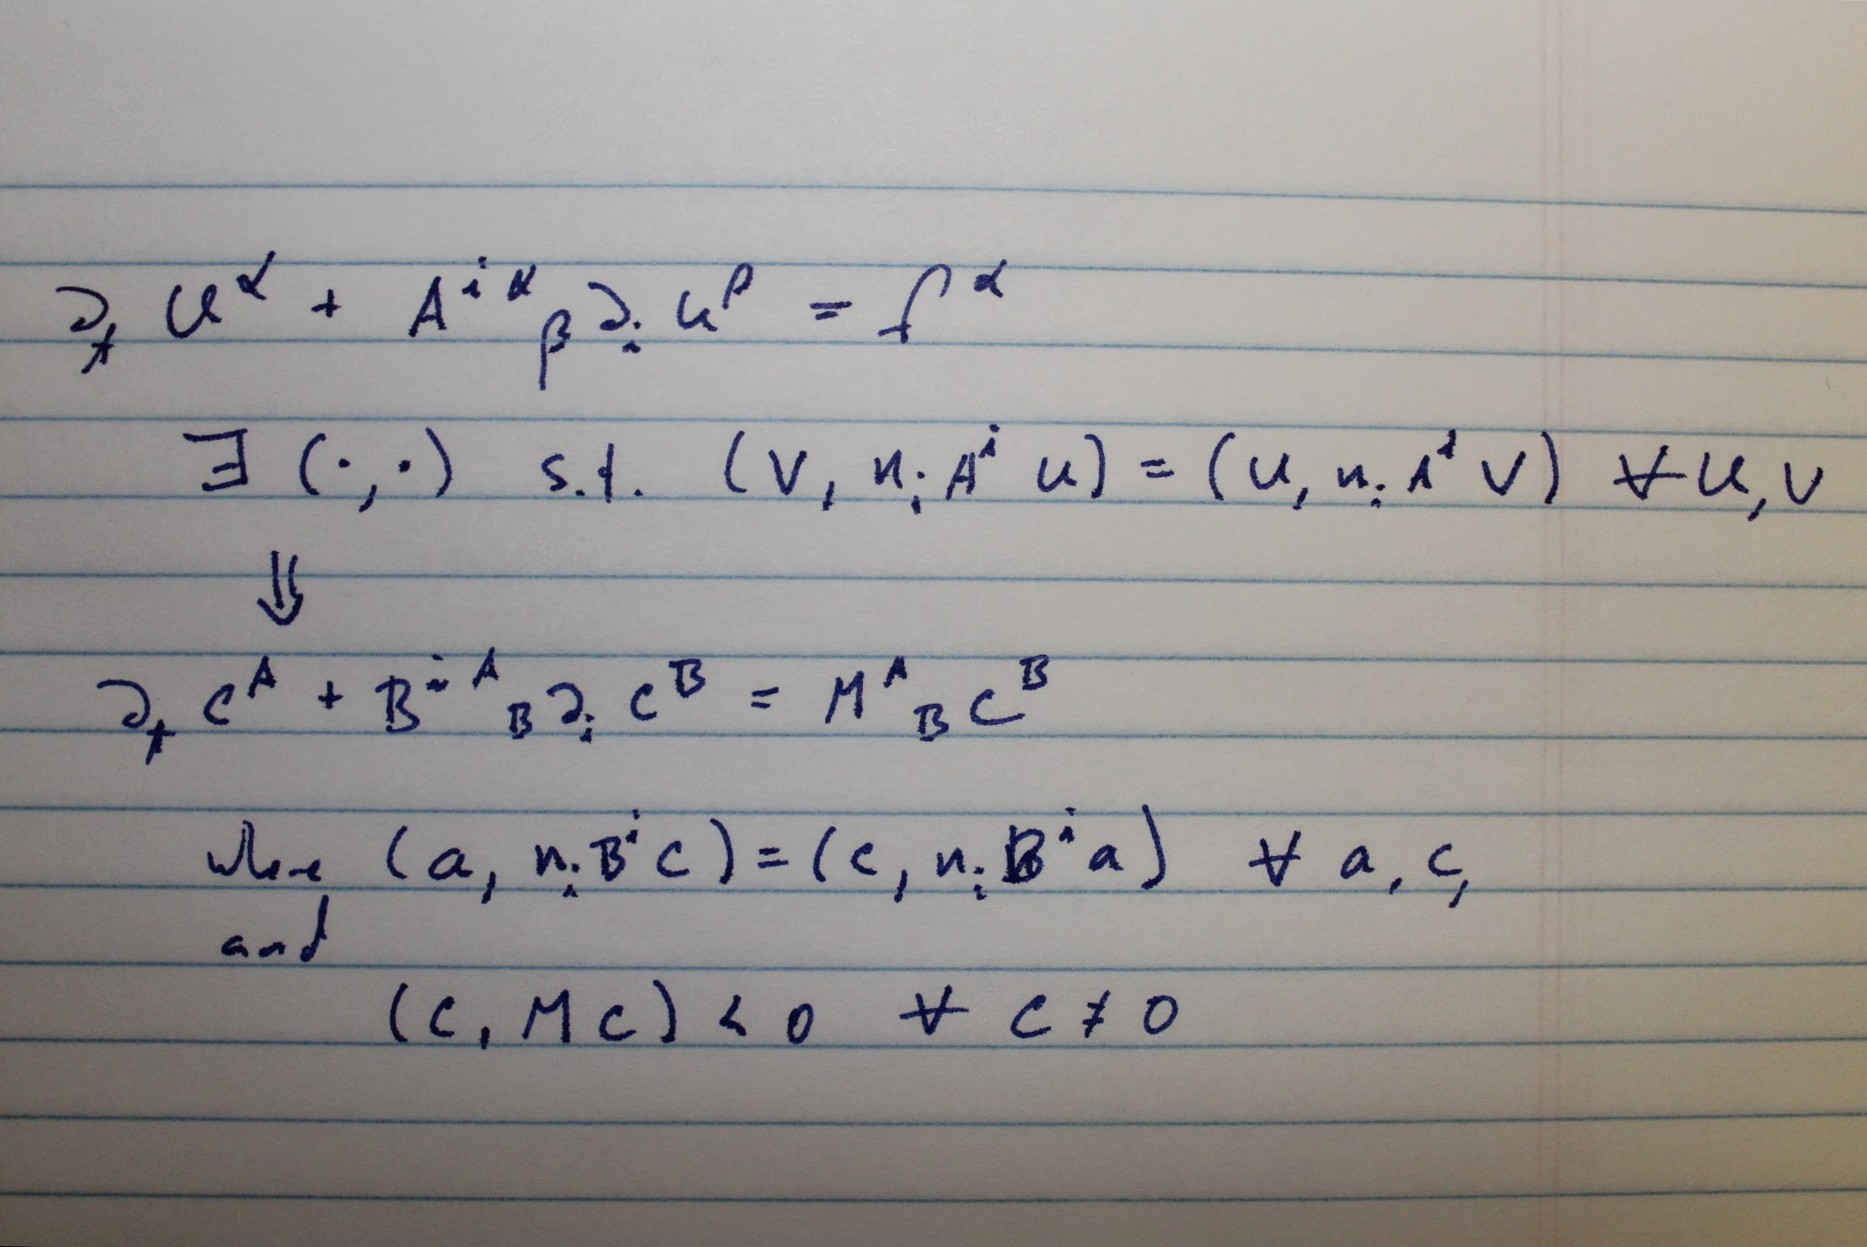 ∂ₜ u^α + A^{iα}_β ∂ᵢ u^β = f^α
∃ (·,·) s.t. (v, nᵢ Aⁱ u) = (u, nᵢ Aⁱ v) ∀ u, v
⇓
∂ₜ c^A + B^{iA}_B ∂ᵢ c^B = M^A_B c^B
where (a, nᵢ Bⁱ c) = (c, nᵢ Bⁱ a) ∀ a, c,
and
(c, M c) < 0 ∀ c ≠ 0